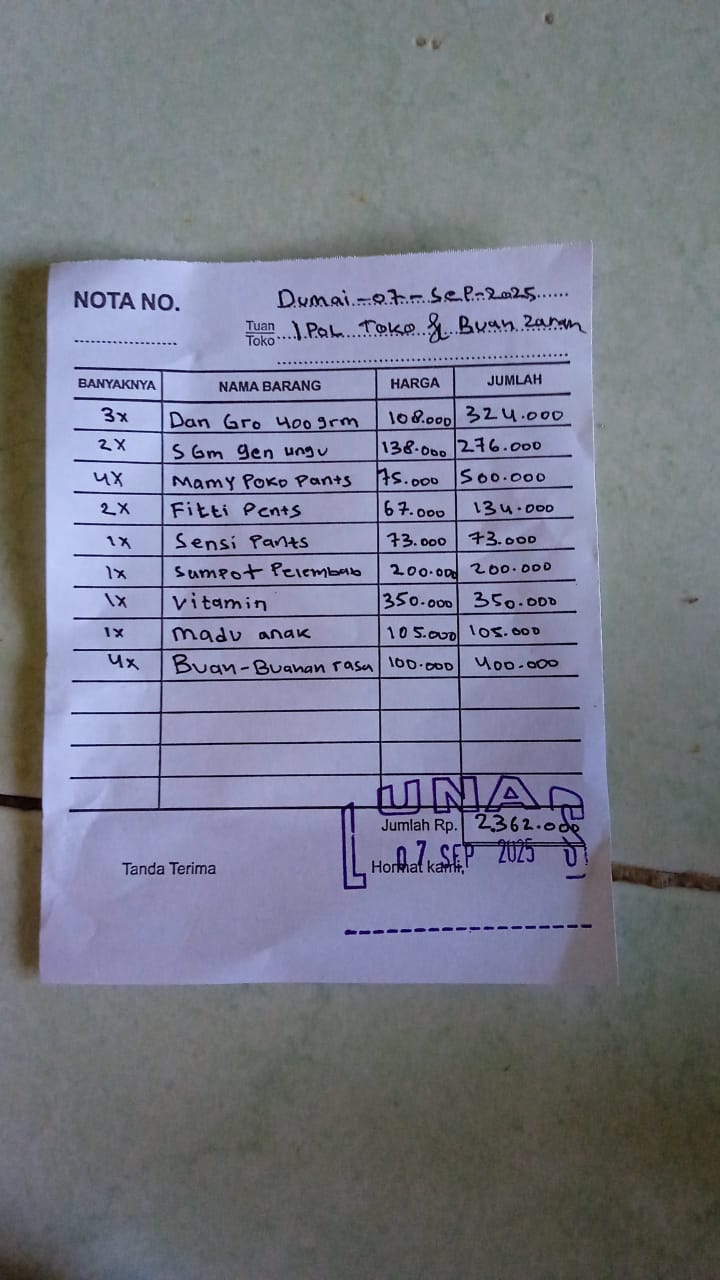 NOTA NO.
Dumai-07-Sep-2025
Tuan
Toko
1 Pak Toko & Buan Zanan
BANYAKNYA NAMA BARANG HARGA JUMLAH
3x Dan Gro 400 grm 108.000 324.000
2x SGm gen ungu 138.000 276.000
4x Mamy Poko Pants 75.000 500.000
2x Fitti Pents 67.000 134.000
1x Sensi Pants 73.000 73.000
1x Sumpot Pelembab 200.000 200.000
1x Vitamin 350.000 350.000
1x madu anak 105.000 105.000
4x Buan-Buanan rasa 100.000 400.000
LUNAS
Jumlah Rp. 2.362.000
07 SEP 2025
Tanda Terima Hormat kami,